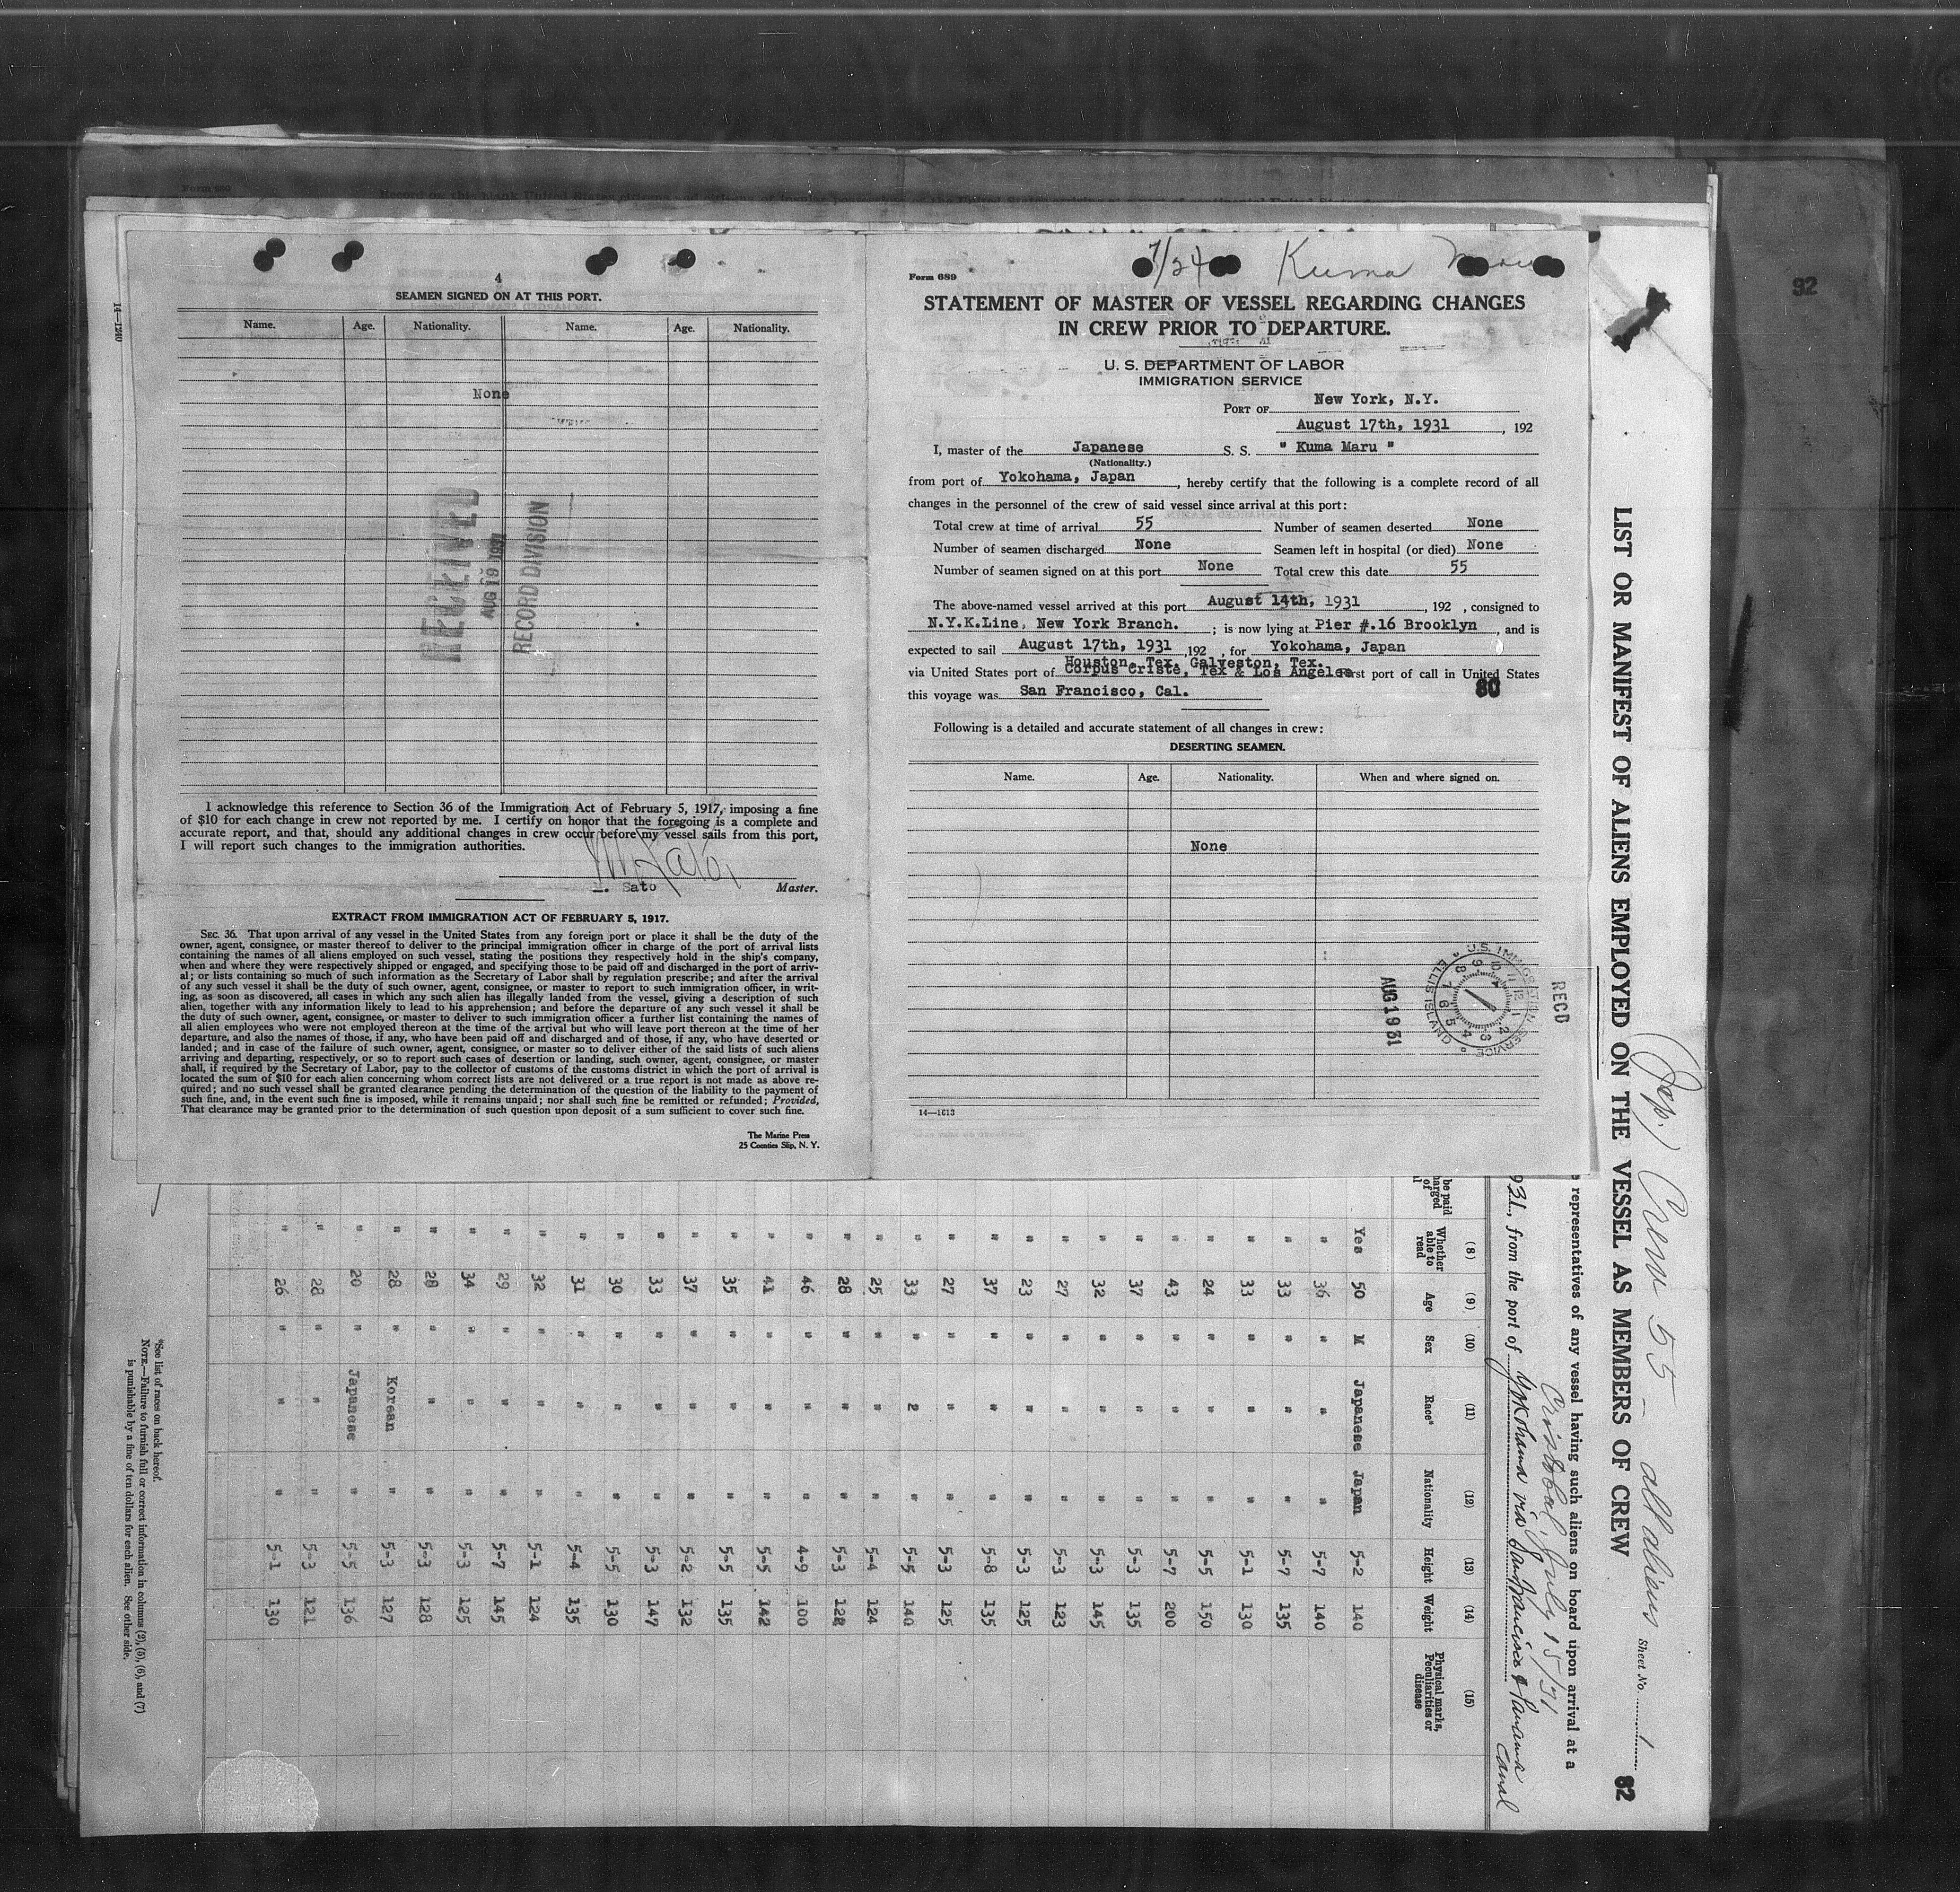 Form 689
7/24 Kuma Maru
STATEMENT OF MASTER OF VESSEL REGARDING CHANGES
IN CREW PRIOR TO DEPARTURE.
U. S. DEPARTMENT OF LABOR
IMMIGRATION SERVICE
PORT OF New York, N.Y.
August 17th, 1931, 192
I, master of the Japanese S. S. " Kuma Maru "
(Nationality.)
from port of Yokohama, Japan, hereby certify that the following is a complete record of all
changes in the personnel of the crew of said vessel since arrival at this port:
Total crew at time of arrival 55 Number of seamen deserted None
Number of seamen discharged None Seamen left in hospital (or died) None
Number of seamen signed on at this port None Total crew this date 55
The above-named vessel arrived at this port August 14th, 1931, 192 , consigned to
N.Y.K.Line, New York Branch. ; is now lying at Pier #.16 Brooklyn, and is
expected to sail August 17th, 1931 ,192 , for Yokohama, Japan
Houston, Tex. Galveston, Tex.
via United States port of Corpus Criste, Tex & Los Angeles First port of call in United States
this voyage was San Francisco, Cal.
80
Following is a detailed and accurate statement of all changes in crew:
DESERTING SEAMEN.
Name. Age. Nationality. When and where signed on.
None
14—1613
RECD
U.S. IMMIGRATION SERVICE
ELLIS ISLAND
AUG 19 31
4
SEAMEN SIGNED ON AT THIS PORT.
Name. Age. Nationality. Name. Age. Nationality.
None
RECEIVED
AUG 19 1931
RECORD DIVISION
I acknowledge this reference to Section 36 of the Immigration Act of February 5, 1917, imposing a fine
of $10 for each change in crew not reported by me. I certify on honor that the foregoing is a complete and
accurate report, and that, should any additional changes in crew occur before my vessel sails from this port,
I will report such changes to the immigration authorities.
M Sato
Sato Master.
EXTRACT FROM IMMIGRATION ACT OF FEBRUARY 5, 1917.
SEC. 36. That upon arrival of any vessel in the United States from any foreign port or place it shall be the duty of the
owner, agent, consignee, or master thereof to deliver to the principal immigration officer in charge of the port of arrival lists
containing the names of all aliens employed on such vessel, stating the positions they respectively hold in the ship's company,
when and where they were respectively shipped or engaged, and specifying those to be paid off and discharged in the port of arriv-
al; or lists containing so much of such information as the Secretary of Labor shall by regulation prescribe; and after the arrival
of any such vessel it shall be the duty of such owner, agent, consignee, or master to report to such immigration officer, in writ-
ing, as soon as discovered, all cases in which any such alien has illegally landed from the vessel, giving a description of such
alien, together with any information likely to lead to his apprehension; and before the departure of any such vessel it shall be
the duty of such owner, agent, consignee, or master to deliver to such immigration officer a further list containing the names of
all alien employees who were not employed thereon at the time of the arrival but who will leave port thereon at the time of her
departure, and also the names of those, if any, who have been paid off and discharged and of those, if any, who have deserted or
landed; and in case of the failure of such owner, agent, consignee, or master so to deliver either of the said lists of such aliens
arriving and departing, respectively, or so to report such cases of desertion or landing, such owner, agent, consignee, or master
shall, if required by the Secretary of Labor, pay to the collector of customs of the customs district in which the port of arrival is
located the sum of $10 for each alien concerning whom correct lists are not delivered or a true report is not made as above re-
quired; and no such vessel shall be granted clearance pending the determination of the question of the liability to the payment of
such fine, and, in the event such fine is imposed, while it remains unpaid; nor shall such fine be remitted or refunded; Provided,
That clearance may be granted prior to the determination of such question upon deposit of a sum sufficient to cover such fine.
The Marine Press
25 Coenties Slip, N. Y.
14—1240
Form 680
92
(Jap.) Crew 55 – all aliens
Sheet No. 1
82
LIST OR MANIFEST OF ALIENS EMPLOYED ON THE VESSEL AS MEMBERS OF CREW
representatives of any vessel having such aliens on board upon arrival at a
Cristobal, July 15/31
931, from the port of Yokohama via San Francisco & Panama Canal
(8) (9) (10) (11) (12) (13) (14) (15)
Whether able to read Age Sex Race* Nationality Height Weight Physical marks, Peculiarities or disease
Yes 50 M Japanese Japan 5-2 140
" 36 " " " 5-7 140
" 33 " " " 5-7 135
" 33 " " " 5-1 130
" 24 " " " 5-5 150
" 43 " " " 5-7 200
" 37 " " " 5-3 135
" 32 " " " 5-3 145
" 27 " " " 5-3 123
" 23 " " " 5-3 125
" 37 " " " 5-8 135
" 27 " " " 5-3 125
" 33 " 2 " 5-5 140
" 25 " " " 5-4 124
" 28 " " " 5-3 128
" 46 " " " 4-9 100
" 41 " " " 5-5 142
" 35 " " " 5-5 135
" 37 " " " 5-2 132
" 33 " " " 5-3 147
" 30 " " " 5-5 130
" 31 " " " 5-4 135
" 32 " " " 5-1 124
" 29 " " " 5-7 145
" 34 " " " 5-3 125
" 28 " " " 5-3 128
" 28 " Korean " 5-3 127
" 20 " Japanese " 5-5 136
" 28 " " " 5-3 121
" 26 " " " 5-1 130
*See list of races on back hereof.
NOTE.—Failure to furnish full or correct information in columns (2), (5), (6), and (7)
is punishable by a fine of ten dollars for each alien. See other side.